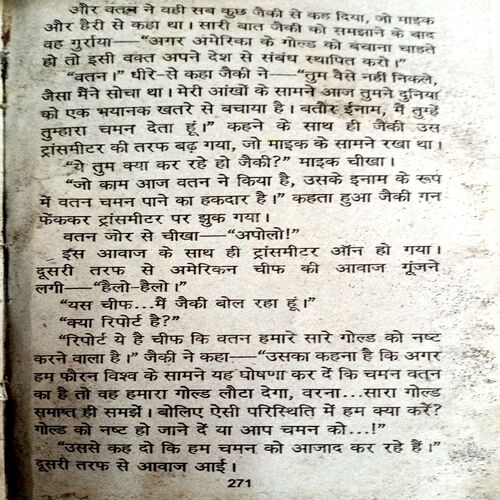 और वतन ने वही सब कुछ जैकी से कह दिया, जो माइक
और हैरी से कहा था। सारी बात जैकी को समझाने के बाद
वह गुर्राया—"अगर अमेरिका के गोल्ड को बंचाना चाहते
हो तो इसी वक्त अपने देश से संबंध स्थापित करो।"
"वतन।" धीरे-से कहा जैकी ने—"तुम वैसे नहीं निकले,
जैसा मैंने सोचा था। मेरी आंखों के सामने आज तुमने दुनिया
को एक भयानक खतरे से बचाया है। बतौर ईनाम, मैं तुम्हें
तुम्हारा चमन देता हूं।" कहने के साथ ही जैकी उस
ट्रांसमीटर की तरफ बढ़ गया, जो माइक के सामने रखा था।
"ये तुम क्या कर रहे हो जैकी?" माइक चीखा।
"जो काम आज वतन ने किया है, उसके इनाम के रूप
में वतन चमन पाने का हकदार है।" कहता हुआ जैकी गन
फेंककर ट्रांसमीटर पर झुक गया।
वतन जोर से चीखा—"अपोलो!"
इस आवाज के साथ ही ट्रांसमीटर ऑन हो गया।
दूसरी तरफ से अमेरिकन चीफ की आवाज गूंजने
लगी—"हैलो-हैलो।"
"यस चीफ...मैं जैकी बोल रहा हूं।"
"क्या रिपोर्ट है?"
"रिपोर्ट ये है चीफ कि वतन हमारे सारे गोल्ड को नष्ट
करने वाला है।" जैकी ने कहा—"उसका कहना है कि अगर
हम फौरन विश्व के सामने यह घोषणा कर दें कि चमन वतन
का है तो वह हमारा गोल्ड लौटा देगा, वरना...सारा गोल्ड
समाप्त ही समझें। बोलिए ऐसी परिस्थिति में हम क्या करें?
गोल्ड को नष्ट हो जाने दें या आप चमन को...!"
"उससे कह दो कि हम चमन को आजाद कर रहे हैं।"
दूसरी तरफ से आवाज आई।
271